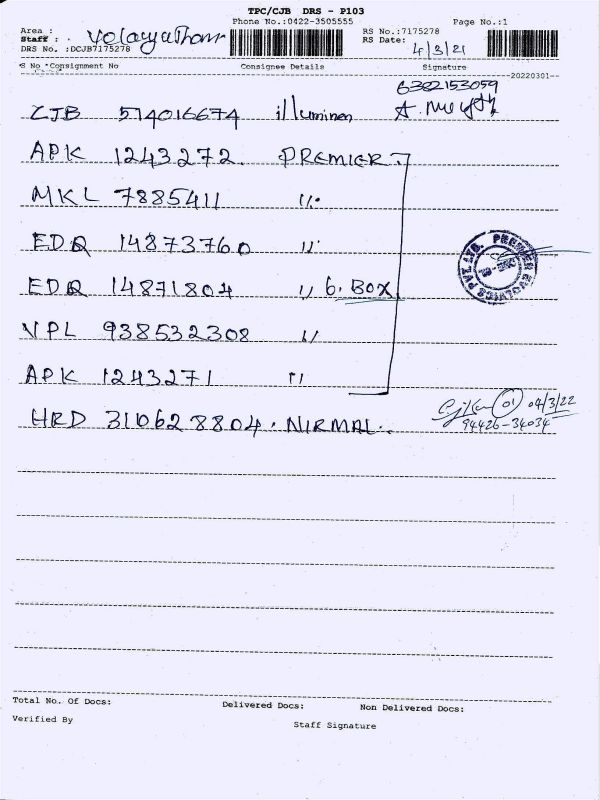 TPC/CJB DRS - P103
Phone No.:0422-3505555 Page No.:1
Area :
Staff : Velayutham
RS No.:7175278
RS Date: 4/3/21
DRS No. :DCJB7175278
S No *Consignment No Consignee Details Signature
--20220301--
6382153059
CJB 514016674 illuminen
APK 1243272. PREMIER.
MKL 7885411 ,,.
EDQ 14873760 ,,
EDQ 14871804 ,, 6. BOX
VPL 938532308 ,,
APK 1243271 ,,
HRD 310628804. NIRMAL.
01 04/3/22
94426-34034
Total No. Of Docs: Delivered Docs: Non Delivered Docs:
Verified By Staff Signature